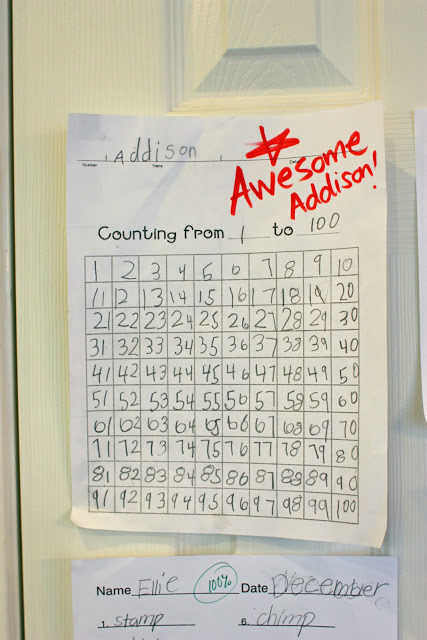 Addison
Number Name
Awesome
Addison!
Counting from 1 to 100
1 2 3 4 5 6 7 8 9 10
11 12 13 14 15 16 17 18 19 20
21 22 23 24 25 26 27 28 29 30
31 32 33 34 35 36 37 38 39 40
41 42 43 44 45 46 47 48 49 50
51 52 53 54 55 56 57 58 59 60
61 62 63 64 65 66 67 68 69 70
71 72 73 74 75 76 77 78 79 80
81 82 83 84 85 86 87 88 89 90
91 92 93 94 95 96 97 98 99 100
Name Ellie 100% Date December
1. stamp 6. chimp